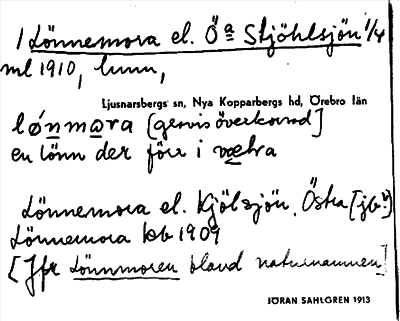 1 Lönnemora el. Öa Skjöhlsjön 1/4
ml 1910, hmn,
Ljusnarsbergs sn, Nya Kopparbergs hd, Örebro län
lǿnmωra [genvis överkorsad]
en lönn der förr i væbra
Lönnemora el. Kjölsjön, Östra [jb!]
Lönnemora kb 1909
[Jfr Lönnmoren bland naturnamnen]
JÖRAN SAHLGREN 1913